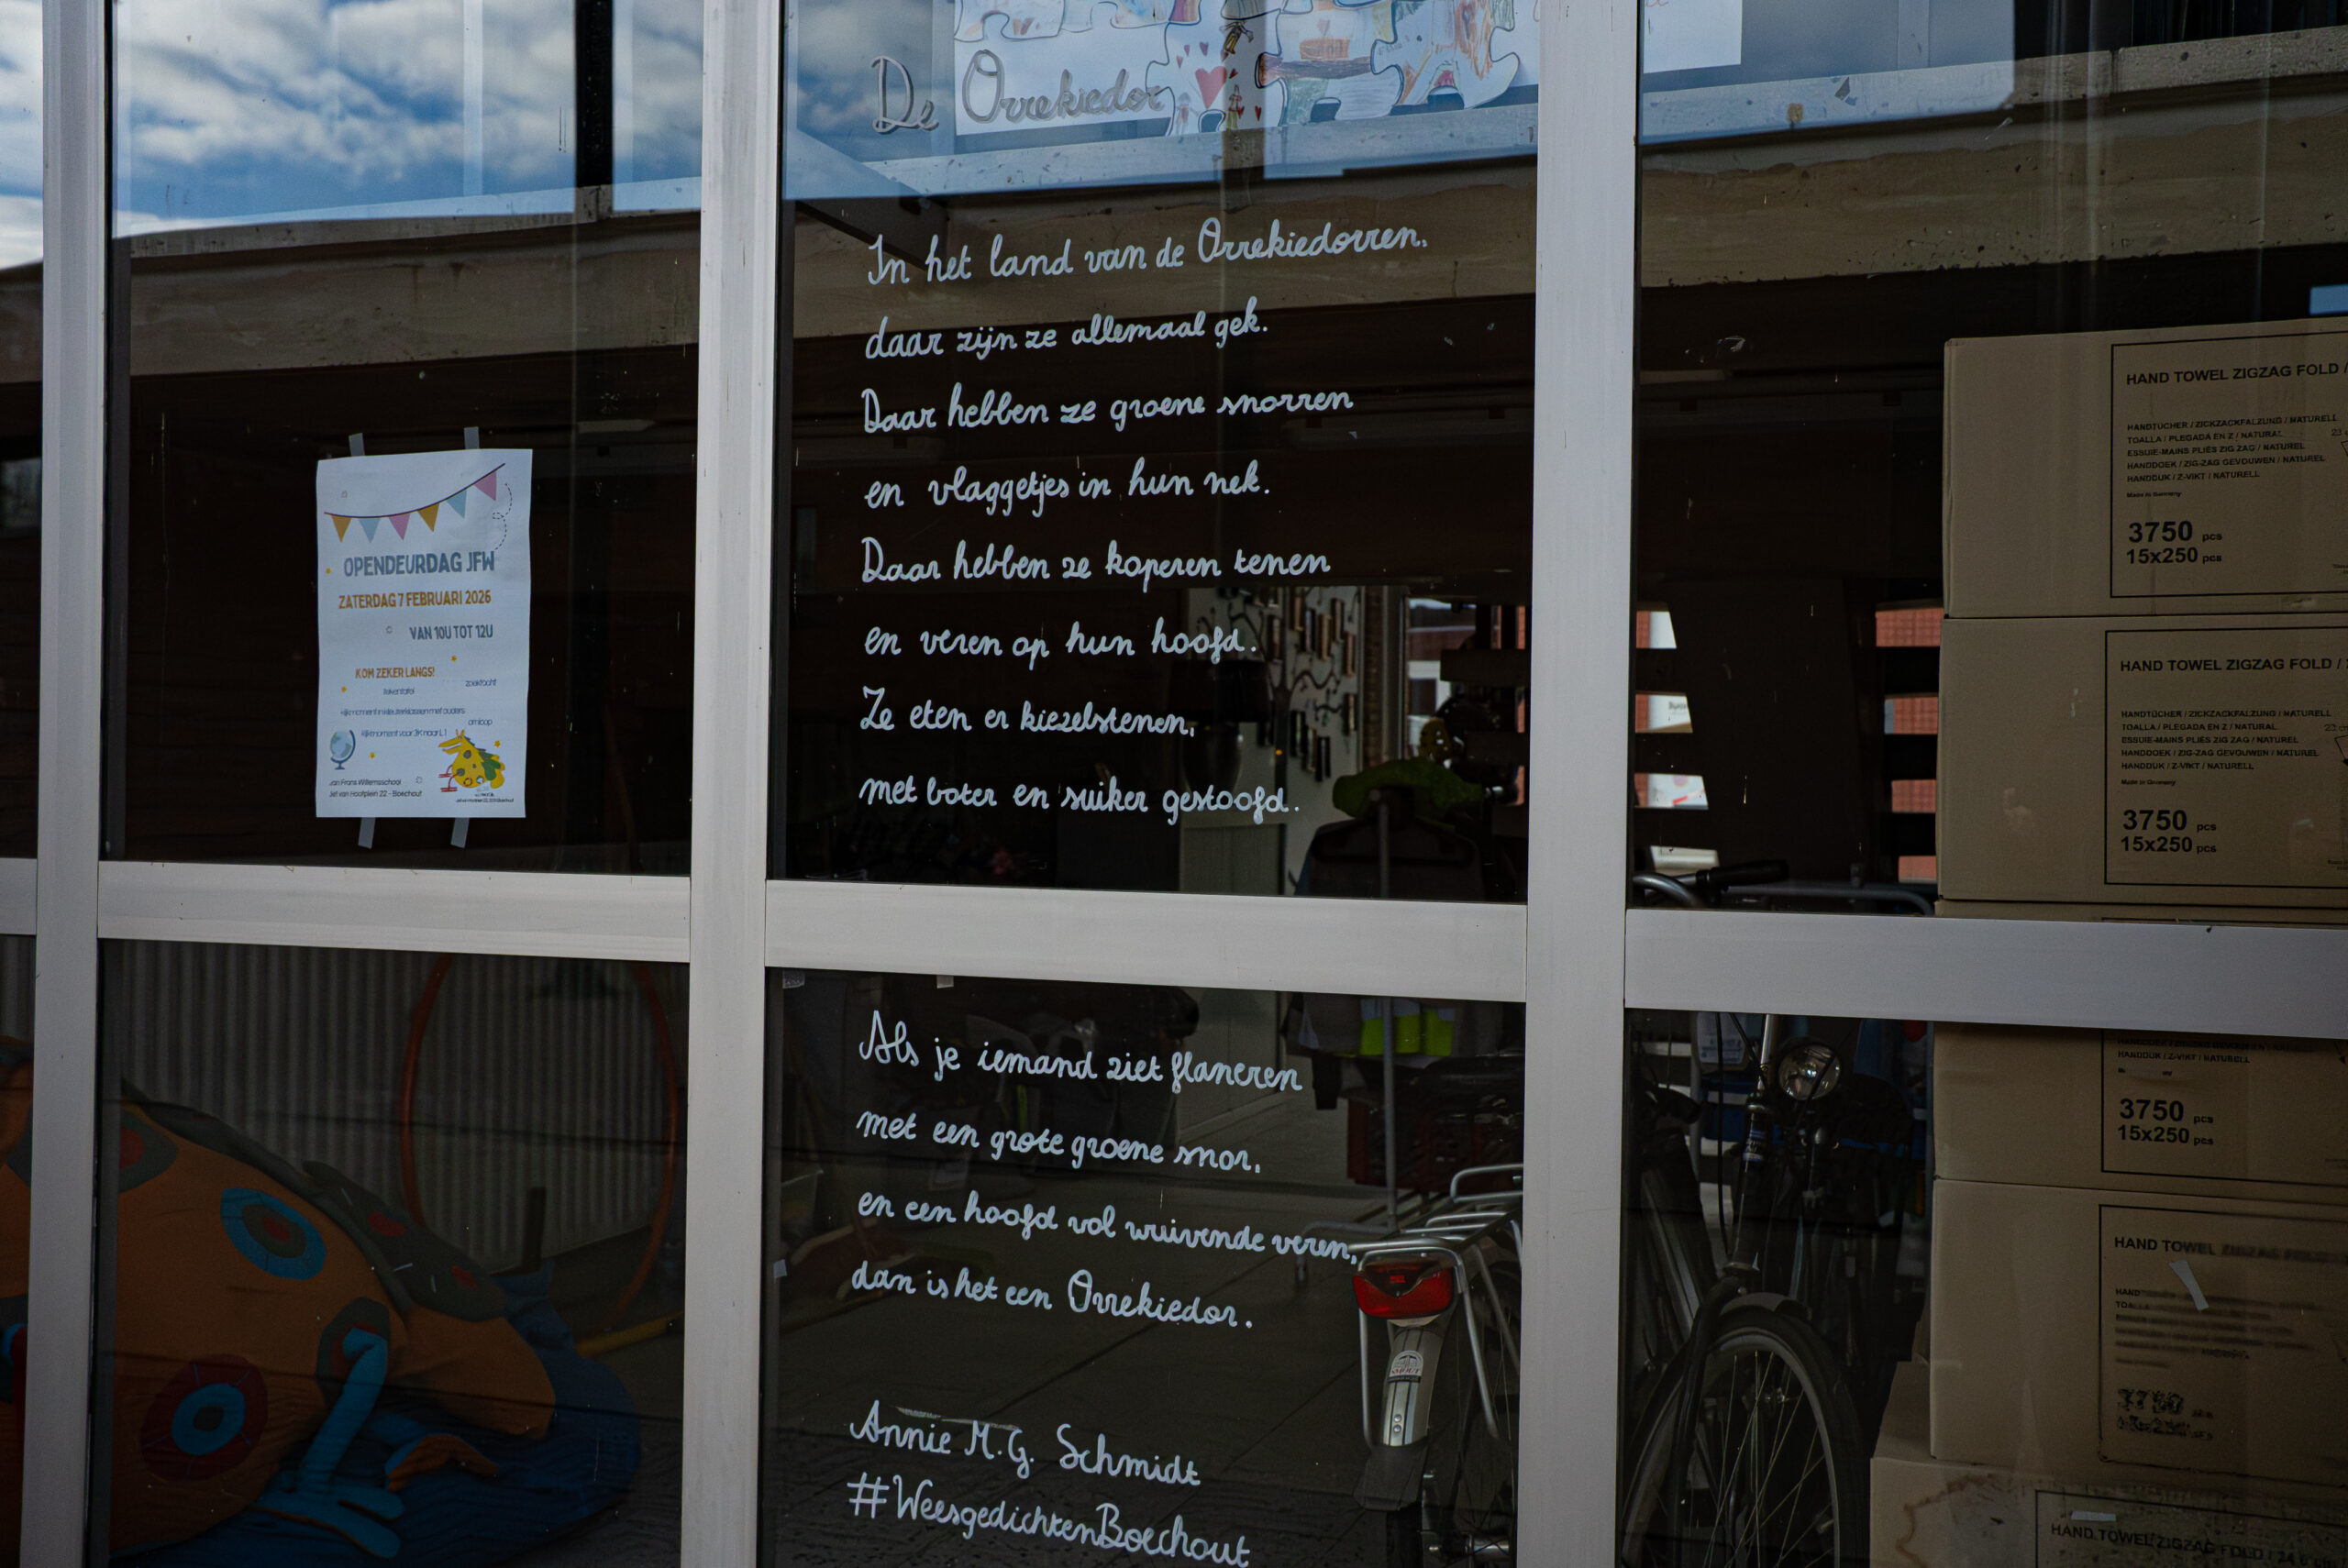 De Orrekiedor
In het land van de Orrekiedorren,
daar zijn ze allemaal gek.
Daar hebben ze groene snorren
en vlaggetjes in hun nek.
Daar hebben ze koperen tenen
en veren op hun hoofd.
Ze eten er kiezelstenen,
met boter en suiker gestoofd.
Als je iemand ziet flaneren
met een grote groene snor,
en een hoofd vol wuivende veren,
dan is het een Orrekiedor.
Annie M.G. Schmidt
#WeesgedichtenBoechout
OPENDEURDAG JFW
ZATERDAG 7 FEBRUARI 2026
VAN 10U TOT 12U
KOM ZEKER LANGS!
zoektocht
omloop
Jan Frans Willemsschool
Jef van Hoofplein 22 - Boechout
HAND TOWEL ZIGZAG FOLD /
HANDTÜCHER / ZICKZACKFALZUNG / NATURELL
TOALLA / PLEGADA EN Z / NATURAL
ESSUIE-MAINS PLIÉS ZIG ZAG / NATUREL
HANDDOEK / ZIG-ZAG GEVOUWEN / NATUREL
HANDDUK / Z-VIKT / NATURELL
Made in Germany
3750 pcs
15x250 pcs
HAND TOWEL ZIGZAG FOLD /
HANDTÜCHER / ZICKZACKFALZUNG / NATURELL
TOALLA / PLEGADA EN Z / NATURAL
ESSUIE-MAINS PLIÉS ZIG ZAG / NATUREL
HANDDOEK / ZIG-ZAG GEVOUWEN / NATUREL
HANDDUK / Z-VIKT / NATURELL
Made in Germany
3750 pcs
15x250 pcs
HANDDUK / Z-VIKT / NATURELL
3750 pcs
15x250 pcs
HAND TOWEL ZIGZAG FOLD
3750
HAND TOWEL ZIGZAG FOLD /